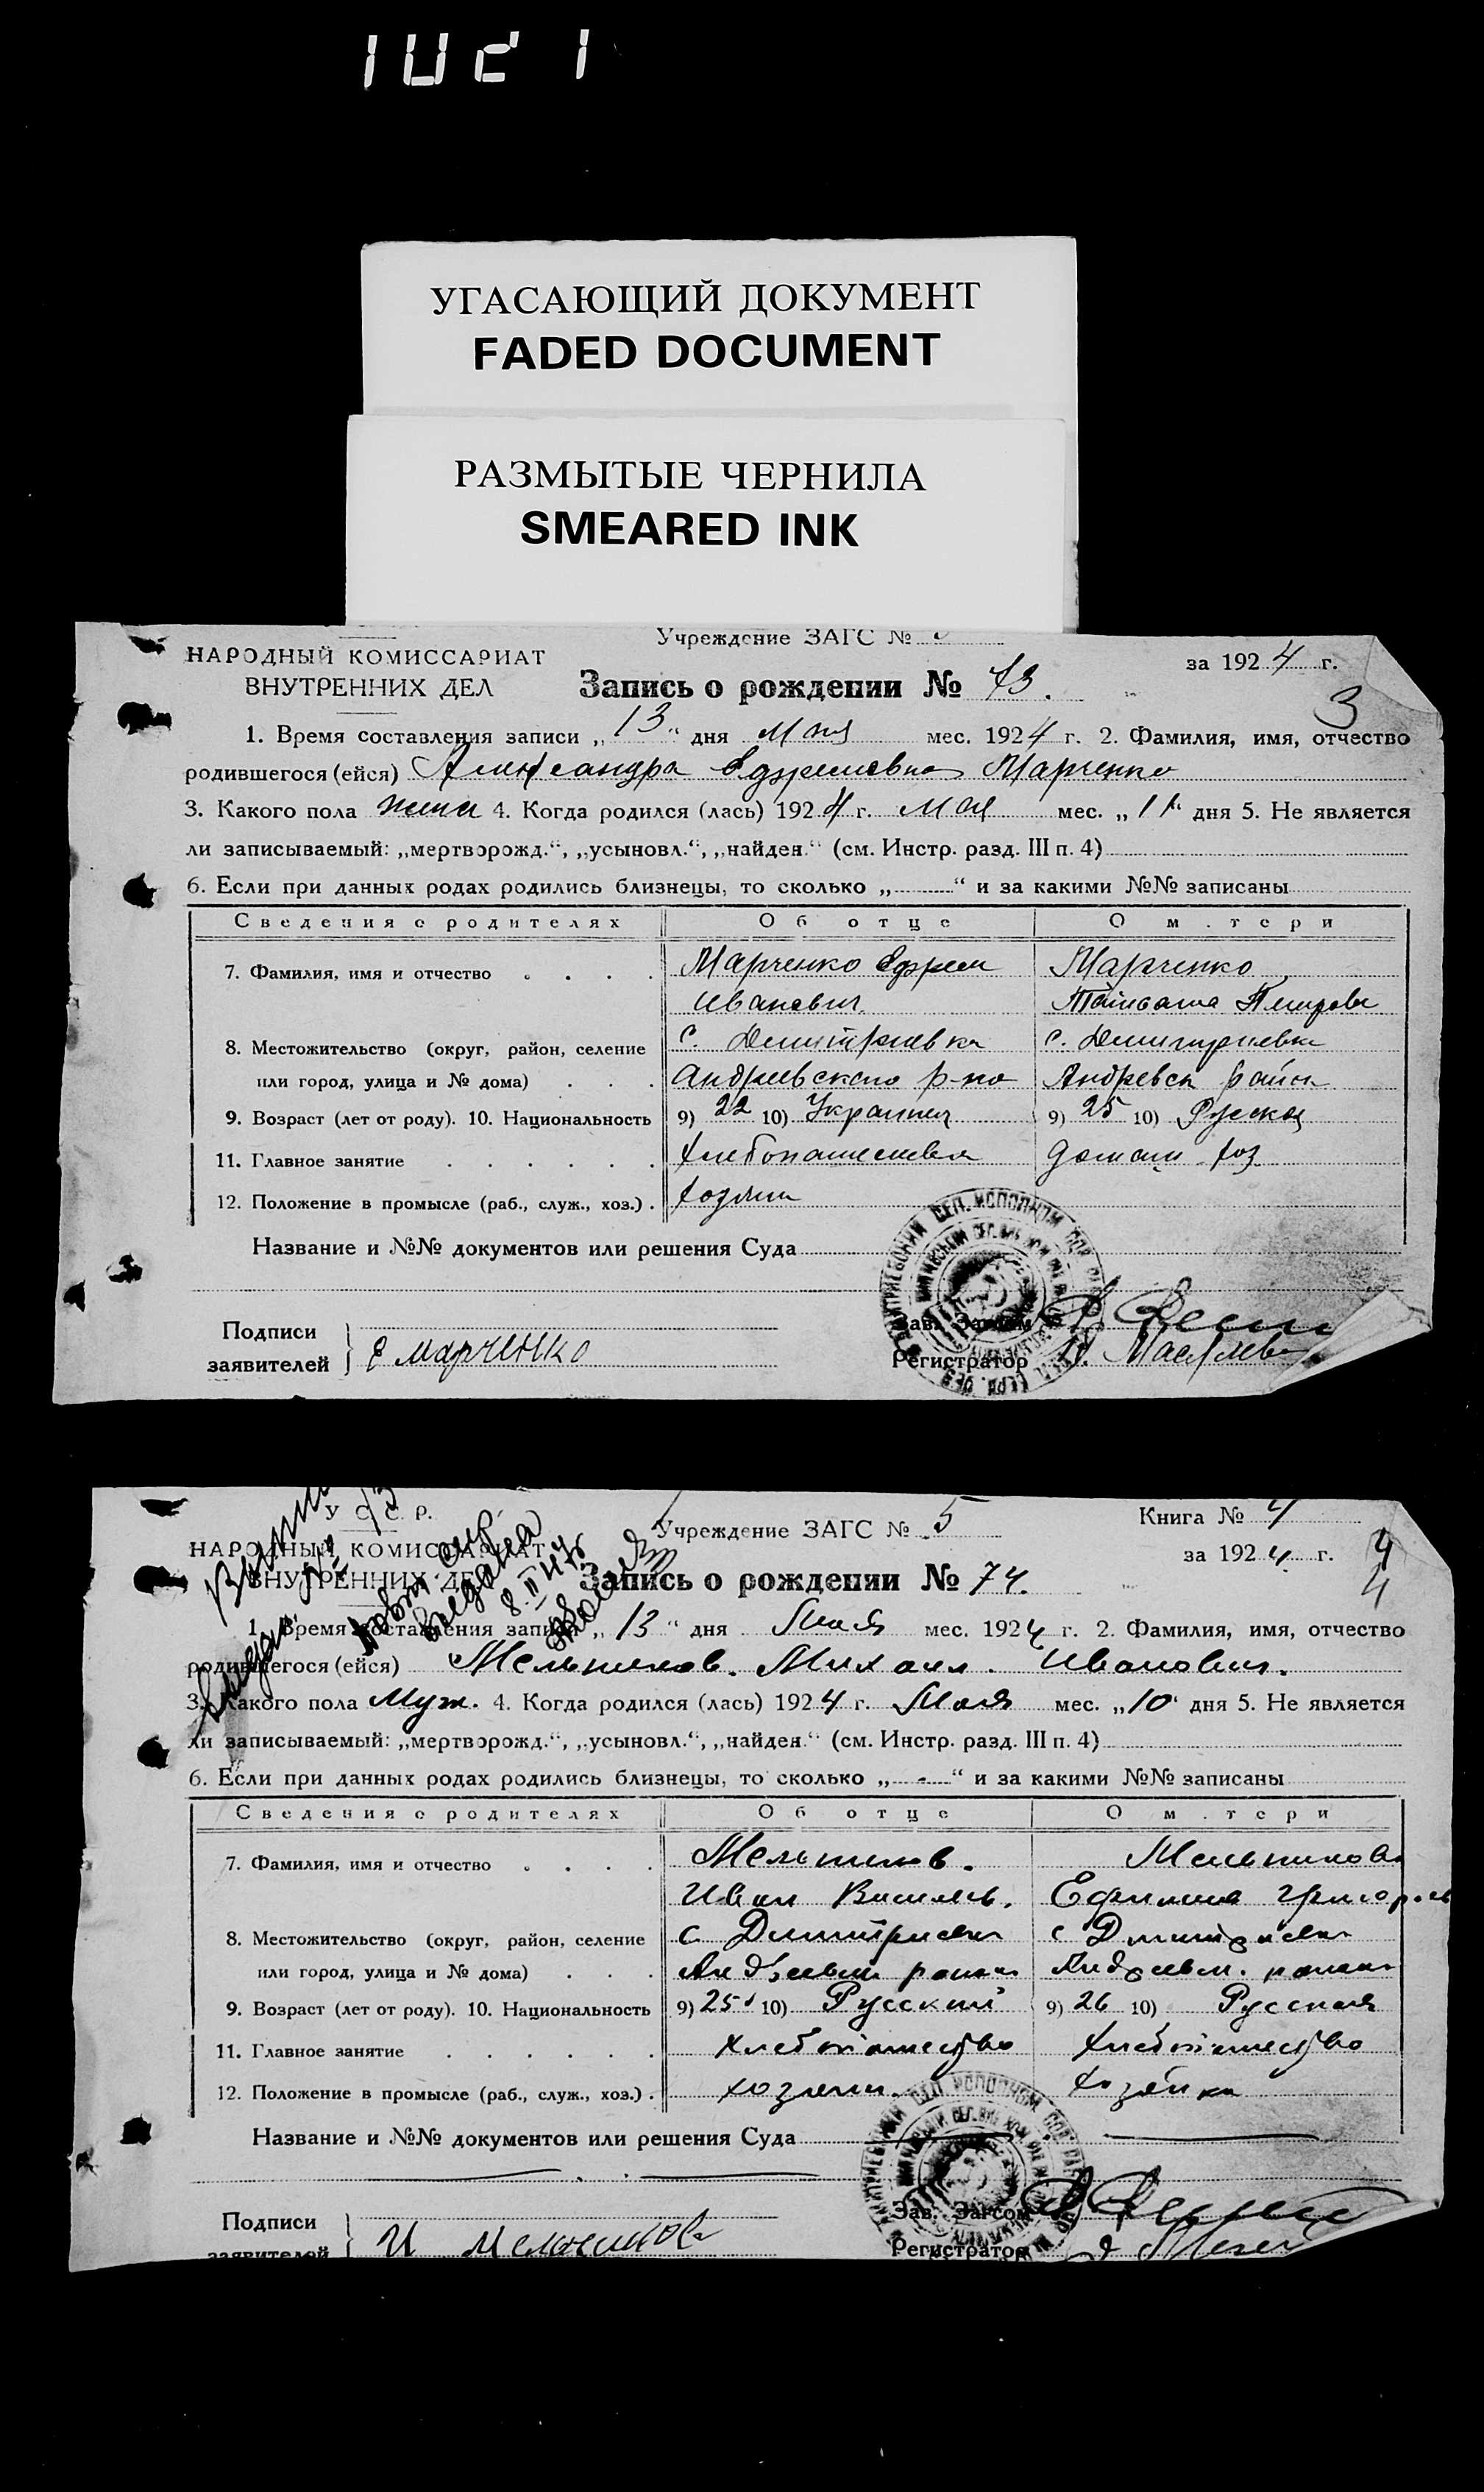 УГАСАЮЩИЙ ДОКУМЕНТ
FADED DOCUMENT
РАЗМЫТЫЕ ЧЕРНИЛА
SMEARED INK
Учреждение ЗАГС №
НАРОДНЫЙ КОМИССАРИАТ
ВНУТРЕННИХ ДЕЛ
за 1924 г.
Запись о рождении № 73.
3
1. Время составления записи „13“ дня Мая мес. 1924 г. 2. Фамилия, имя, отчество
родившегося (ейся) Александра Ефремовна Марченко
3. Какого пола жен 4. Когда родился (лась) 1924 г. Мая мес. „11“ дня 5. Не является
ли записываемый: „мертворожд.“, „усыновл.“, „найден.“ (см. Инстр. разд. III п. 4)
6. Если при данных родах родились близнецы, то сколько „ “ и за какими №№ записаны
Сведения о родителях Об отце О м.тери
7. Фамилия, имя и отчество Марченко Ефрем Марченко
Иванович
8. Местожительство (округ, район, селение с. Димитриевка с. Димитриевка
или город, улица и № дома) Андреевского р-на Андреевск район
9. Возраст (лет от роду). 10. Национальность 9) 22 10) Украинец 9) 25 10) Русская
11. Главное занятие домаш хоз
12. Положение в промысле (раб., служ., хоз.) хозяин
Название и №№ документов или решения Суда
Подписи
заявителей Е Марченко
Зав. Загсом
Регистратор
У С С Р.
НАРОДНЫЙ КОМИССАРИАТ
ВНУТРЕННИХ ДЕЛ
Учреждение ЗАГС № 5
Книга № 4
за 1924 г.
4
Запись о рождении № 74.
1. Время составления записи „13“ дня Мая мес. 1924 г. 2. Фамилия, имя, отчество
родившегося (ейся) Мельников. Михаил. Иванович.
3. Какого пола Муж. 4. Когда родился (лась) 1924 г. Мая мес. „10“ дня 5. Не является
ли записываемый: „мертворожд.“, „усыновл.“, „найден.“ (см. Инстр. разд. III п. 4)
6. Если при данных родах родились близнецы, то сколько „-“ и за какими №№ записаны
Сведения о родителях Об отце О м.тери
7. Фамилия, имя и отчество Мельников. Мельникова
Иван Василев.
8. Местожительство (округ, район, селение с Димитриевка с Димитриевка
или город, улица и № дома)
9. Возраст (лет от роду). 10. Национальность 9) 25 10) Русский 9) 26 10) Русская
11. Главное занятие Хлебопашество Хлебопашество
12. Положение в промысле (раб., служ., хоз.) хозяин. хозяйка
Название и №№ документов или решения Суда
Подписи
заявителей И Мельников
Зав. Загсом
Регистратор